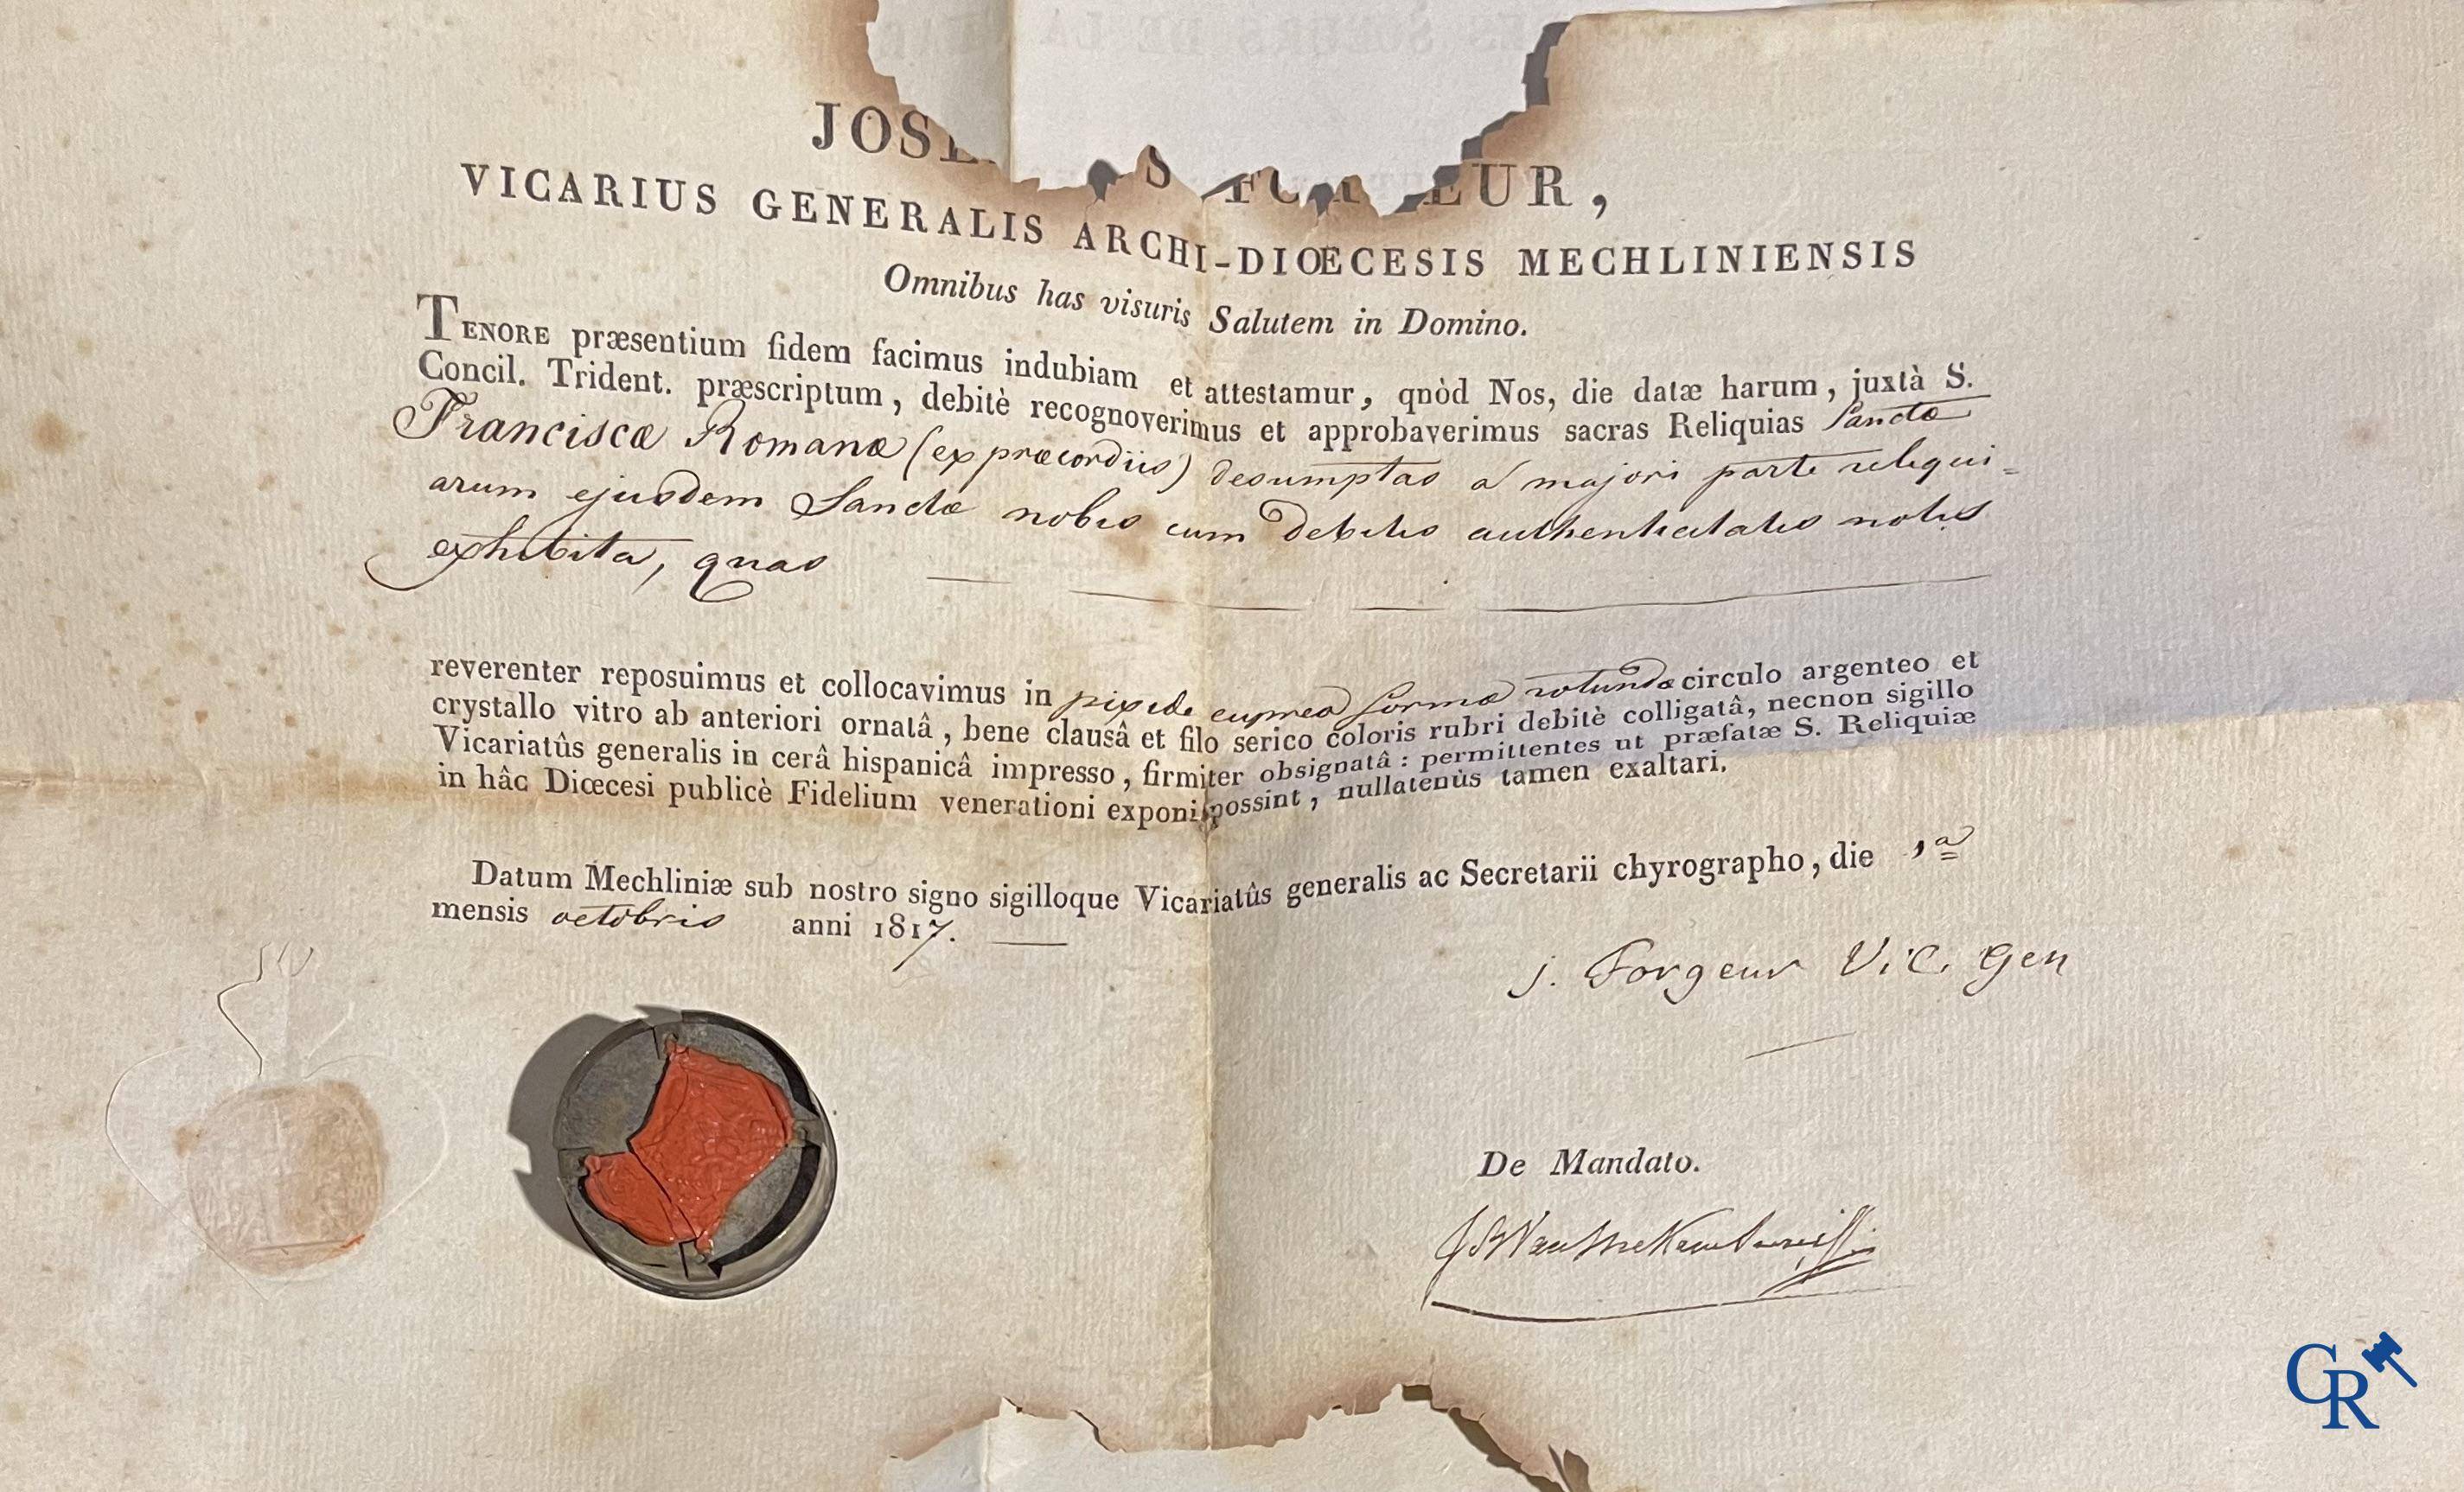 JOSE S FO EUR,
VICARIUS GENERALIS ARCHI-DIŒCESIS MECHLINIENSIS
Omnibus has visuris Salutem in Domino.
TENORE præsentium fidem facimus indubiam et attestamur, quòd Nos, die datæ harum, juxtà S.
Concil. Trident. præscriptum, debitè recognoverimus et approbaverimus sacras Reliquias Sanctæ
Franciscæ Romanæ (ex præcordiis) desumptas a majori parte reliqui=
arum ejusdem Sanctæ nobis cum debitis authenticitatis notis
exhibita, quas
reverenter reposuimus et collocavimus in pixide cuprea formæ rotundæ circulo argenteo et
crystallo vitro ab anteriori ornatâ, bene clausâ et filo serico coloris rubri debitè colligatâ, necnon sigillo
Vicariatûs generalis in cerâ hispanicâ impresso, firmiter obsignatâ: permittentes ut præfatæ S. Reliquiæ
in hâc Diœcesi publicè Fidelium venerationi exponi possint, nullatenùs tamen exaltari.
Datum Mechliniæ sub nostro signo sigilloque Vicariatûs generalis ac Secretarii chyrographo, die 1a
mensis octobris anni 1817.
J. Forgeur Vic. Gen
De Mandato.
CR